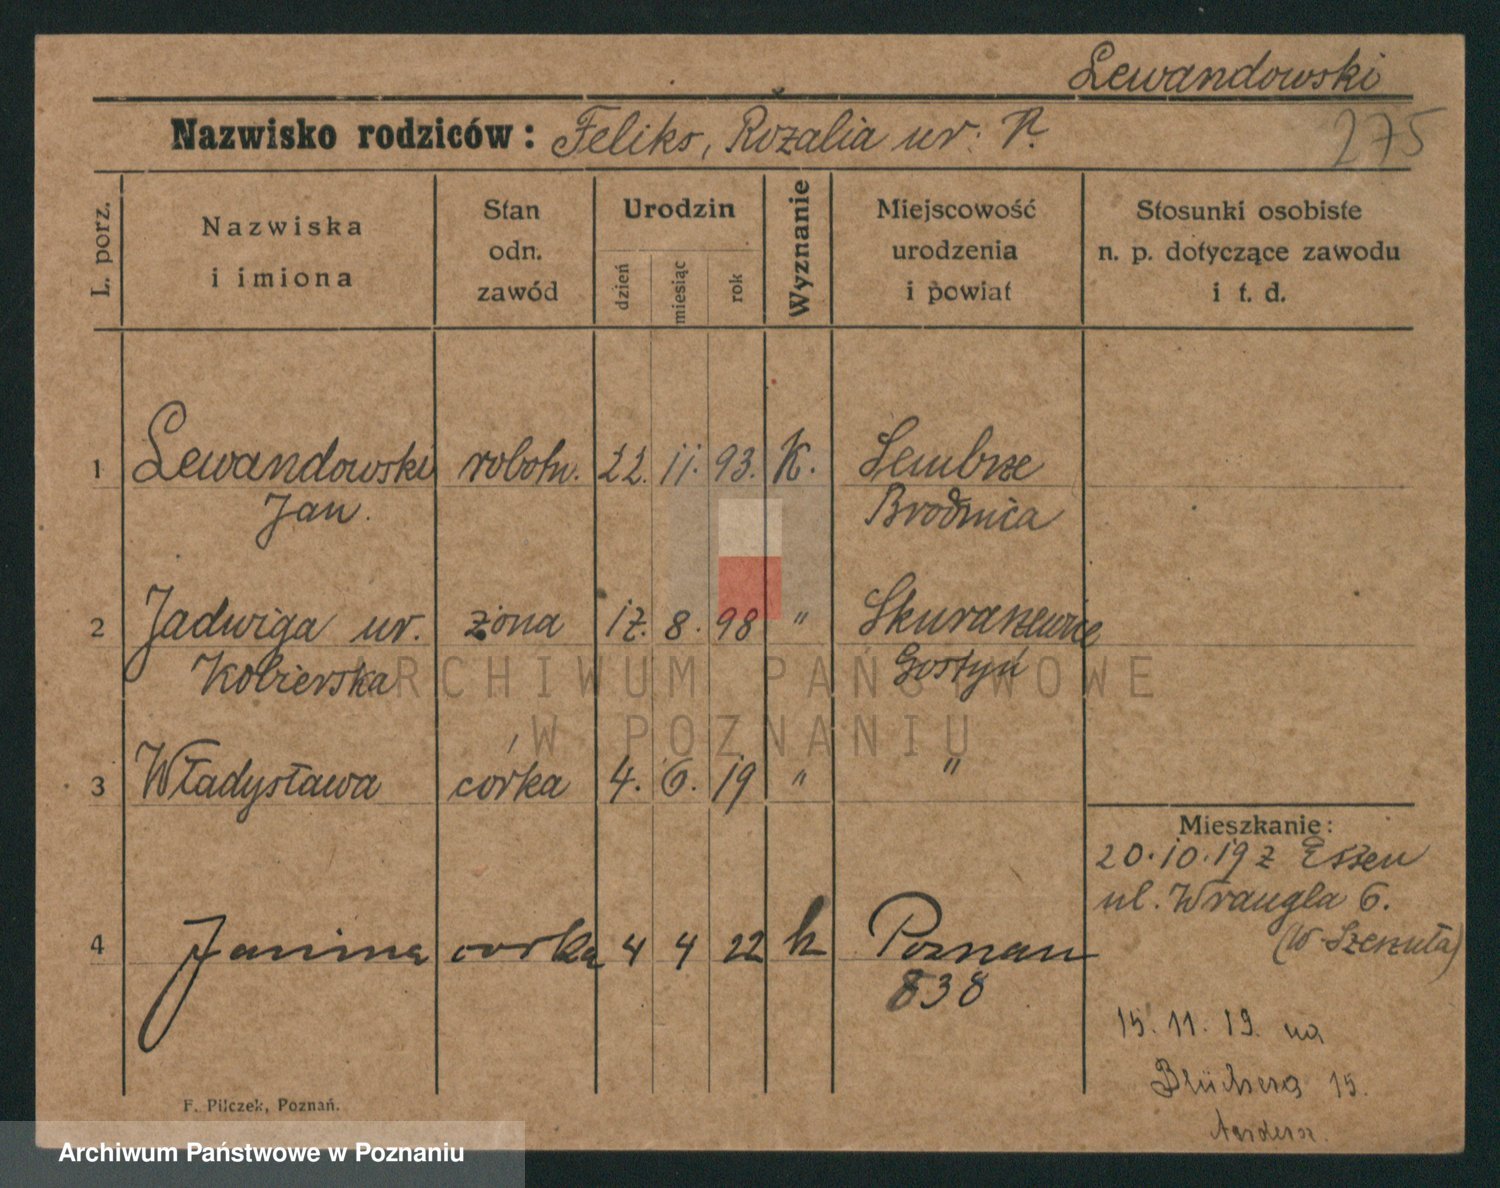 Lewandowski
Nazwisko rodziców: Feliks, Rozalia ur. R.
275
L. porz.
Nazwiska
i imiona
Stan
odn.
zawód
Urodzin
dzień
miesiąc
rok
Wyznanie
Miejscowość
urodzenia
i powiat
Stosunki osobiste
n. p. dotyczące zawodu
i t. d.
1 Lewandowski robotn. 22. 11. 93. K. Sembrze
Jan. Brodnica
2 Jadwiga ur. żona 17. 8. 98 " Skuraszewice
Kobierska Gostyń
3 Władysława córka 4. 6. 19 " "
4 Janina corka 4 4 22 k Poznan
838
Mieszkanie:
20.10.19 z Essen
ul. Wrangla 6.
(W.
15. 11. 19. na
Blüchera 15.
F. Pilczek, Poznań.
ARCHIWUM PAŃSTWOWE
W POZNANIU
Archiwum Państwowe w Poznaniu